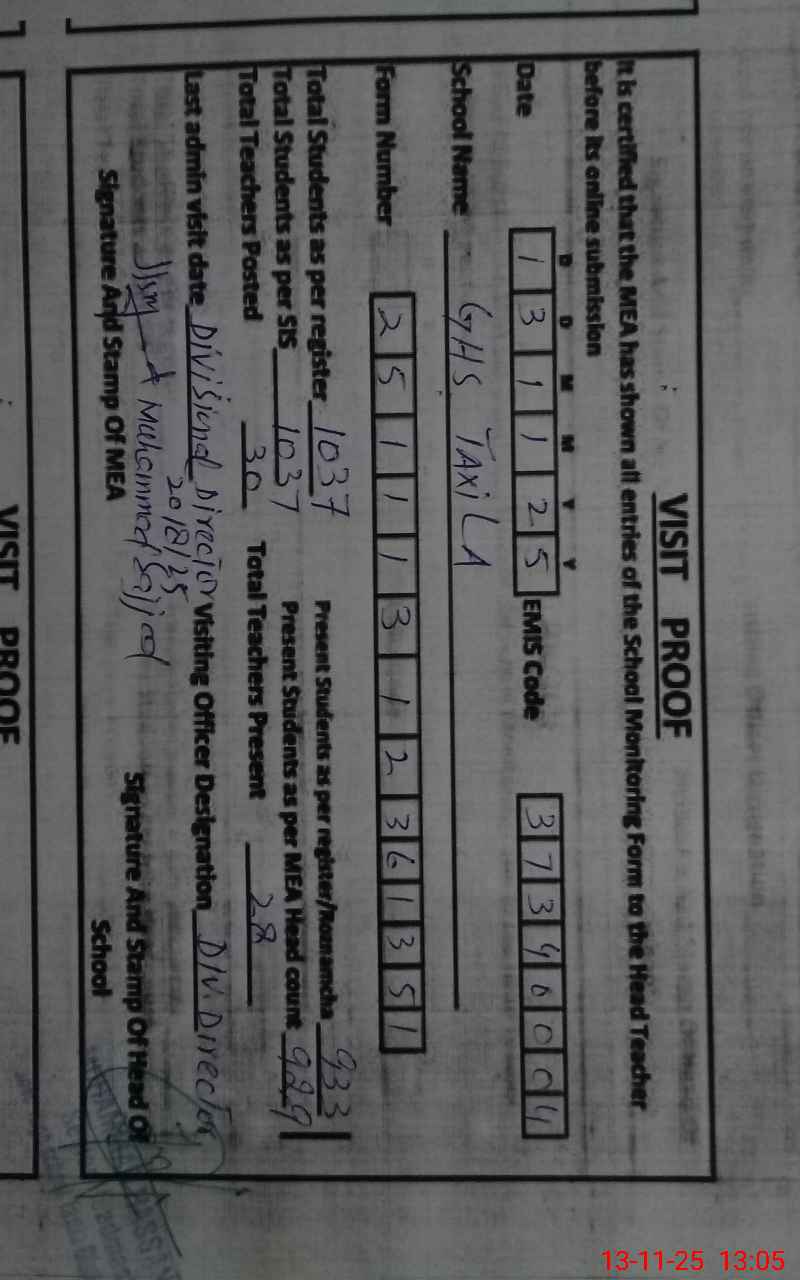 VISIT PROOF
It is certified that the MEA has shown all entries of the School Monitoring Form to the Head Teacher
before its online submission
D D M M Y Y
Date 1 3 1 1 2 5 EMIS Code 3 7 3 4 0 0 0 4
School Name GHS TAXiLA
Form Number 2 5 1 1 1 3 1 2 3 6 1 3 5 1
Total Students as per register 1037 Present Students as per register/Roznamcha 933
Total Students as per SIS 1037 Present Students as per MEA Head count 929
Total Teachers Posted 30 Total Teachers Present 28
Last admin visit date Divisional Director Visiting Officer Designation DIV. Director
20/8/25
Muhammad Sajjad
Signature And Stamp Of MEA Signature And Stamp Of Head Of
School
VISIT PROOF
13-11-25 13:05